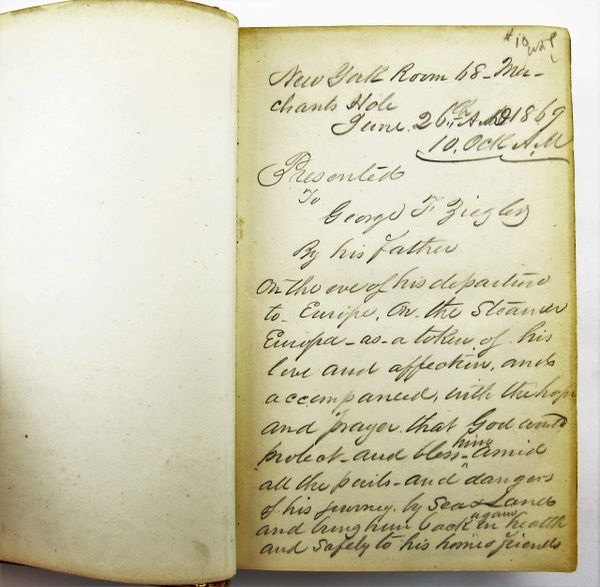 #10
New York Room 68 - Mer-
chants Hole
June 26th A.D 1869
10. Ock A.M
Presented
To
George F Ziegler
By his father
On the eve of his departure
to Europe, On the Steamer
Europa - as a token of his
love and affection, and
accompanied, with the hope
and prayer that God would
protect and bless him amid
all the perils and dangers
of his journey by Sea & Land
and bring him back again in health
and safely to his home & friends